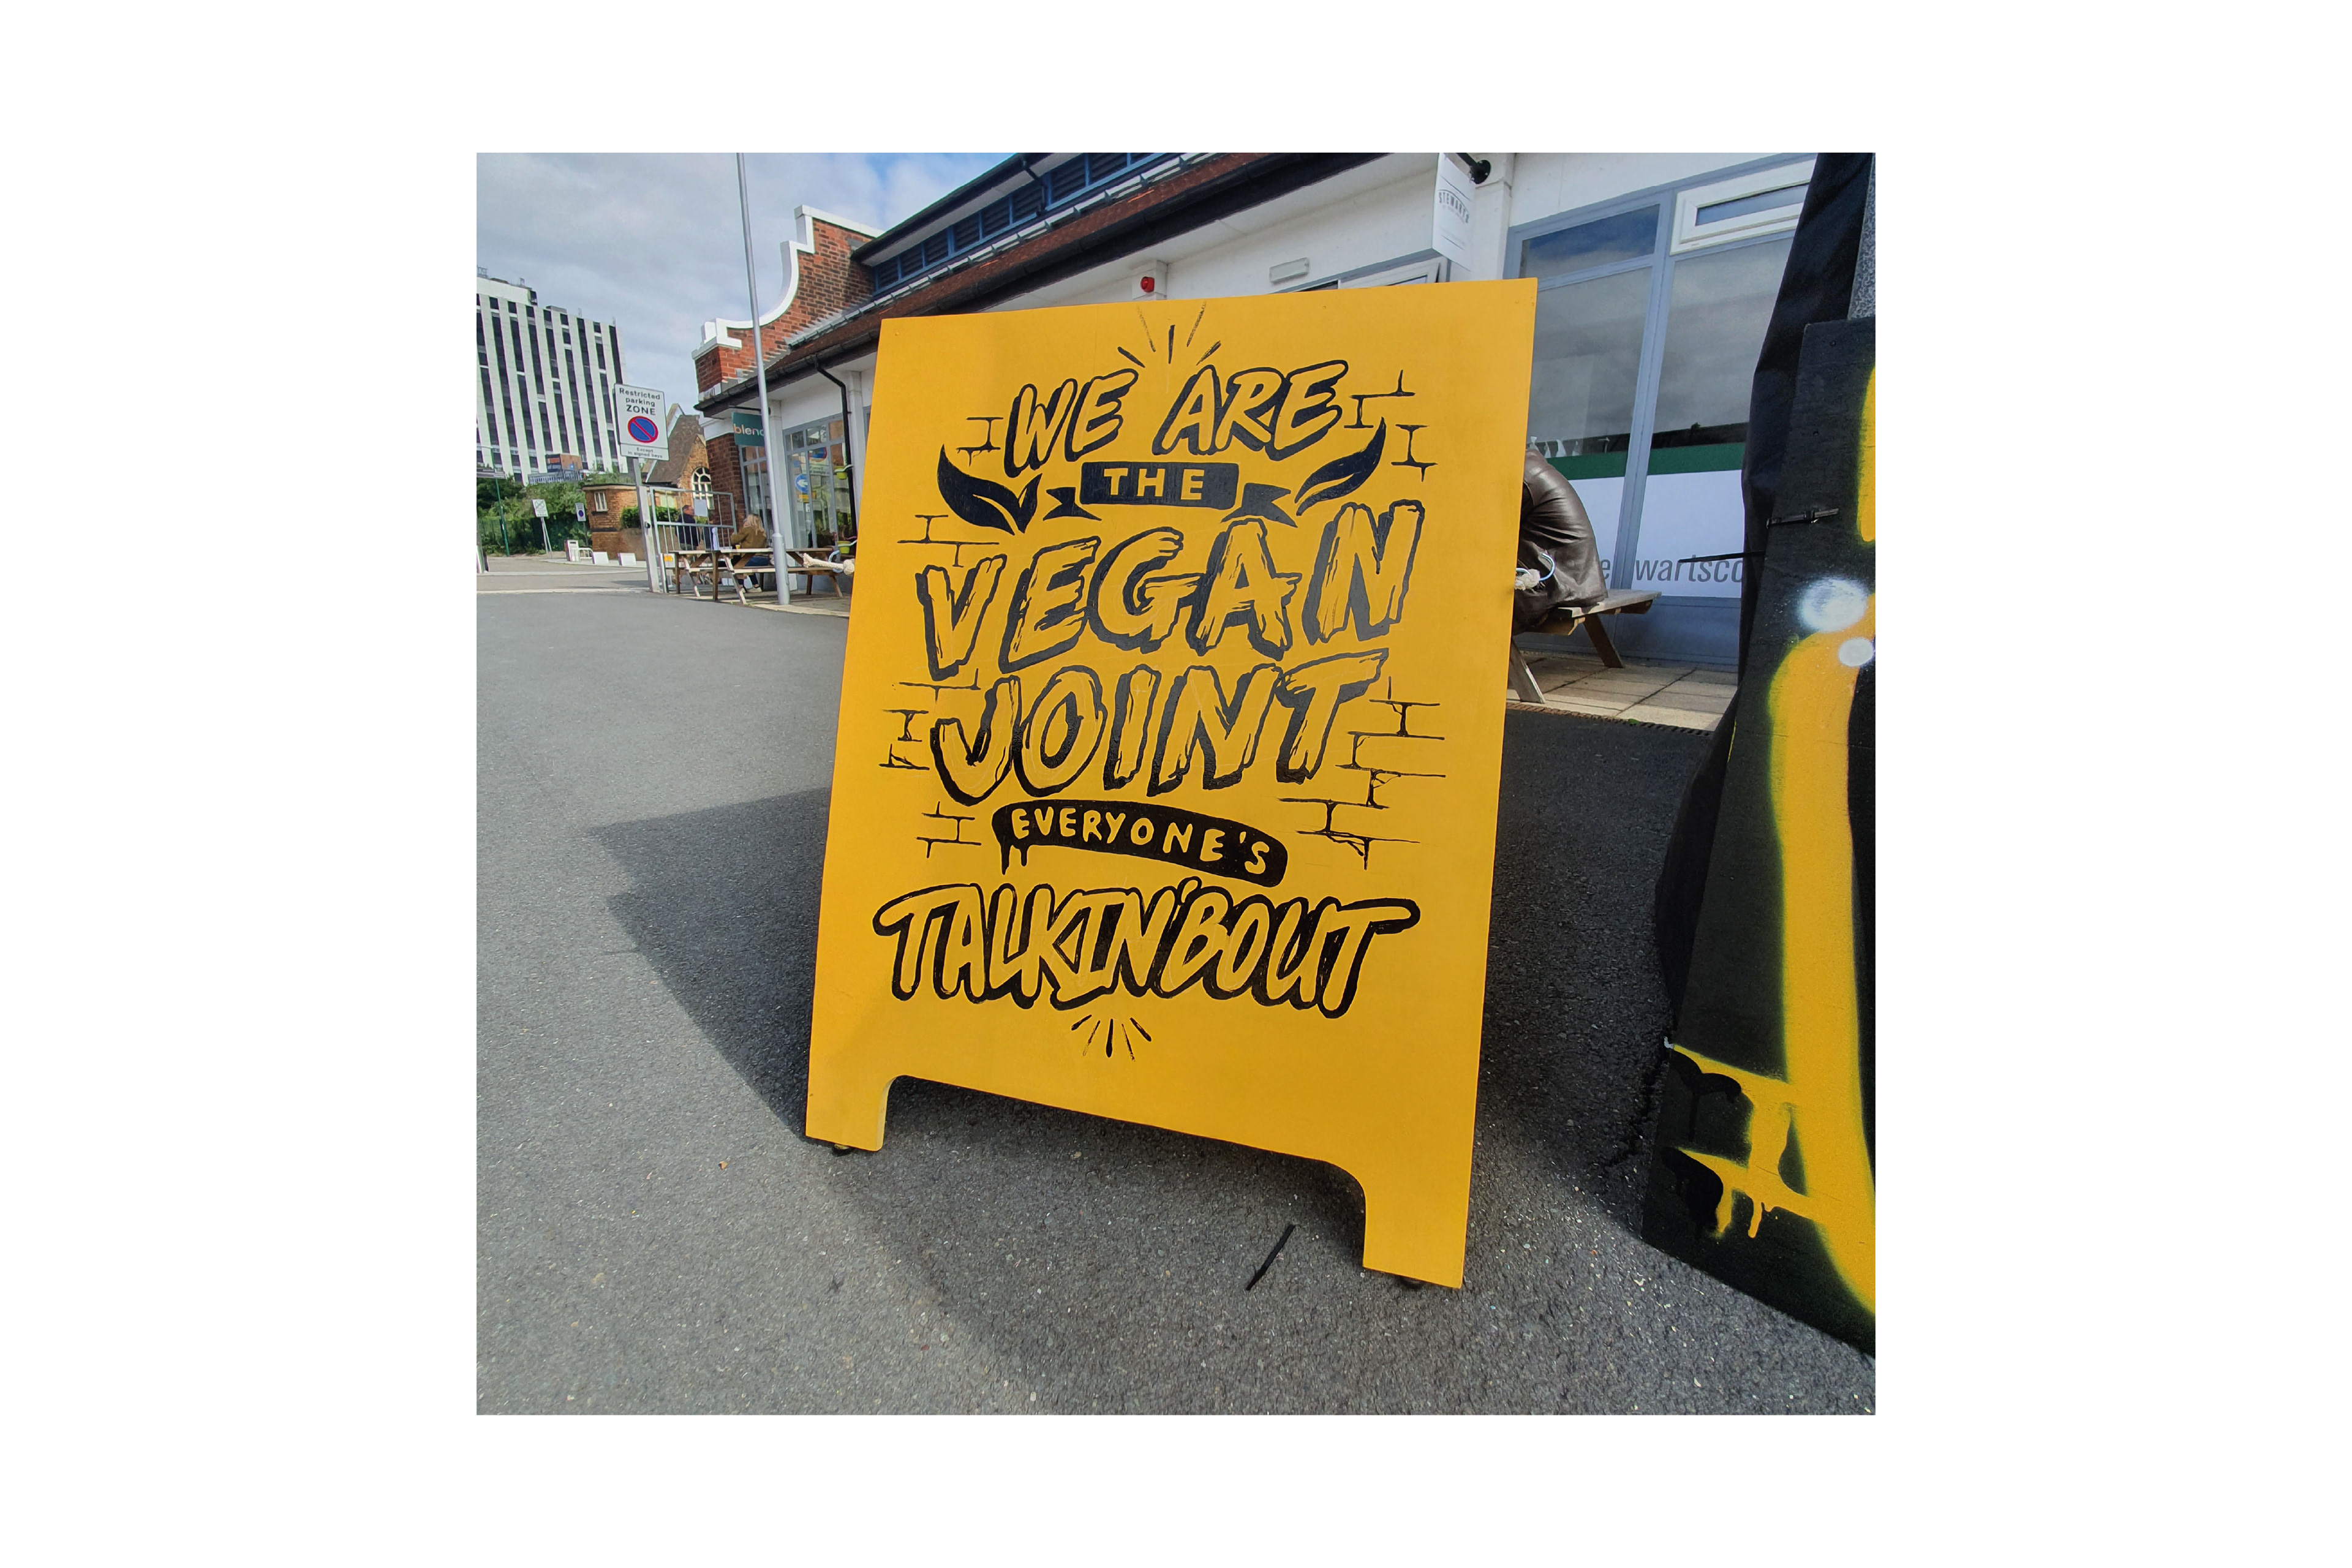 WE ARE
THE
VEGAN
JOINT
EVERYONE'S
TALKIN'BOUT
Restricted
parking
ZONE
STEWARTS